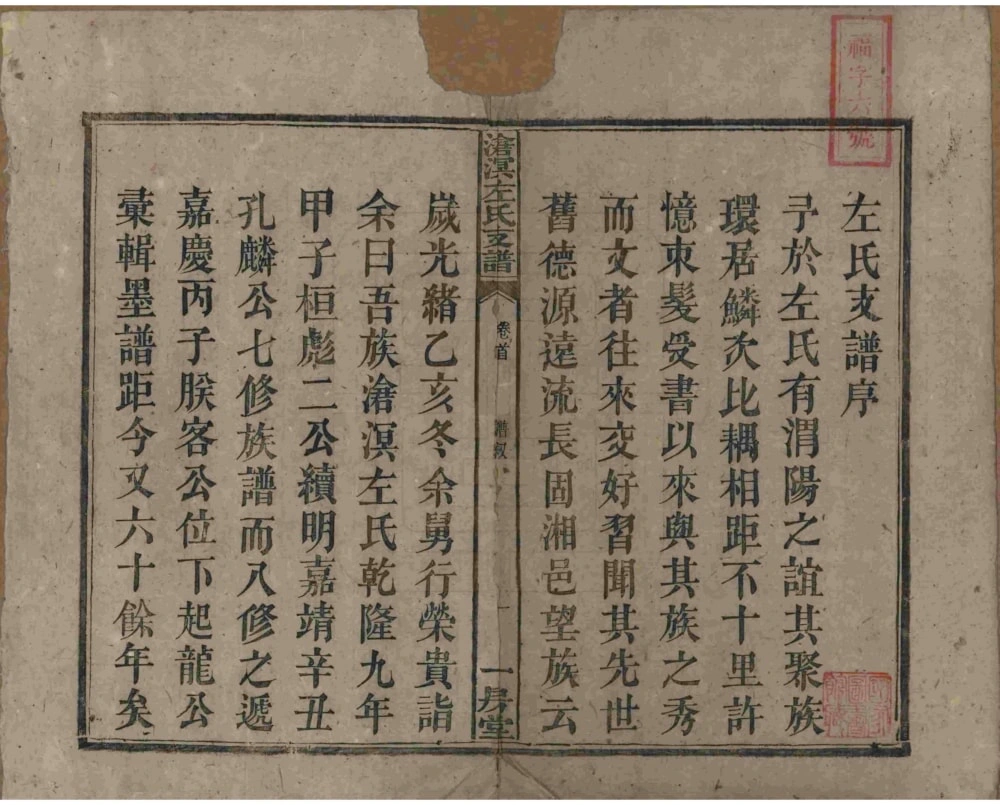 左氏支譜序
予於左氏有渭陽之誼其聚族
環居鱗次比耦相距不十里許
憶束髮受書以來與其族之秀
而文者往來交好習聞其先世
舊德源遠流長固湘邑望族云
滄溟左氏支譜
卷首
一房堂
歲光緒乙亥冬余舅行榮貴詣
余曰吾族滄溟左氏乾隆九年
甲子桓彪二公續明嘉靖辛丑
孔麟公七修族譜而八修之遞
嘉慶丙子朕客公位下起龍公
彙輯墨譜距今又六十餘年矣
福字六號